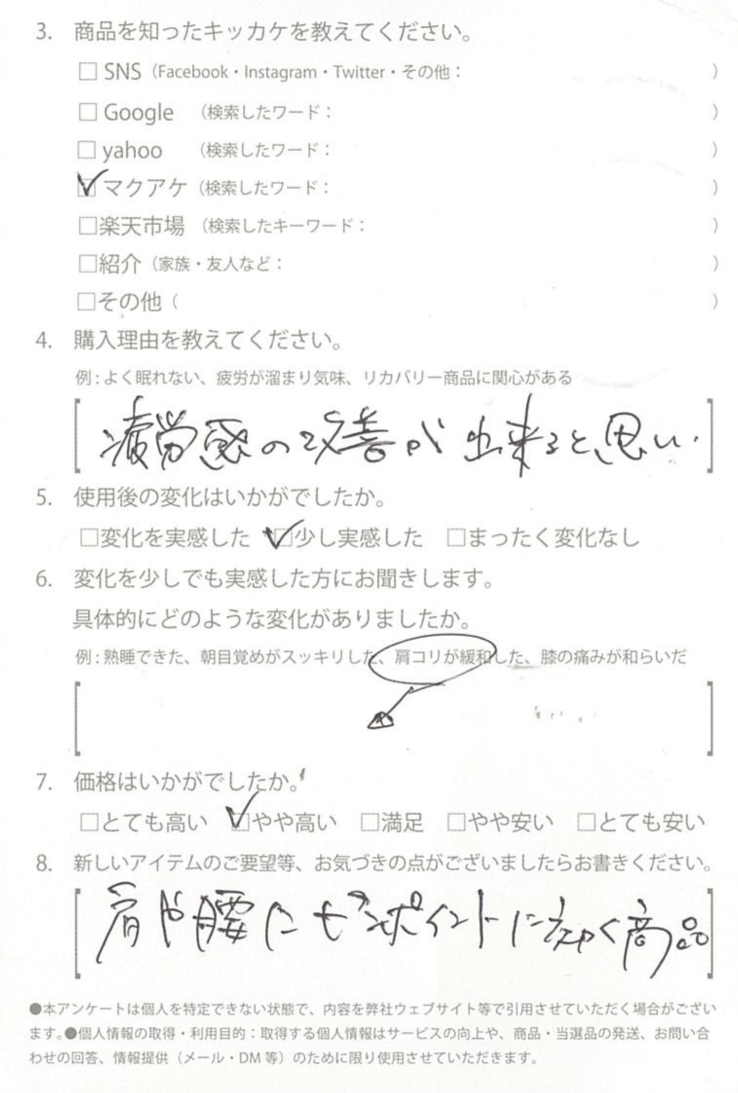 3. 商品を知ったキッカケを教えてください。
□ SNS（Facebook・Instagram・Twitter・その他： ）
□ Google （検索したワード： ）
□ yahoo （検索したワード： ）
☑ マクアケ（検索したワード： ）
□楽天市場 （検索したキーワード： ）
□紹介（家族・友人など： ）
□その他（ ）
4. 購入理由を教えてください。
例：よく眠れない、疲労が溜まり気味、リカバリー商品に関心がある
疲労感の改善が出来ると思い.
5. 使用後の変化はいかがでしたか。
□変化を実感した ☑少し実感した □まったく変化なし
6. 変化を少しでも実感した方にお聞きします。
具体的にどのような変化がありましたか。
例：熟睡できた、朝目覚めがスッキリした、肩コリが緩和した、膝の痛みが和らいだ
7. 価格はいかがでしたか。
□とても高い ☑やや高い □満足 □やや安い □とても安い
8. 新しいアイテムのご要望等、お気づきの点がございましたらお書きください。
肩や腰にピンポイントに効く商品
●本アンケートは個人を特定できない状態で、内容を弊社ウェブサイト等で引用させていただく場合がござい
ます。●個人情報の取得・利用目的：取得する個人情報はサービスの向上や、商品・当選品の発送、お問い合
わせの回答、情報提供（メール・DM 等）のために限り使用させていただきます。